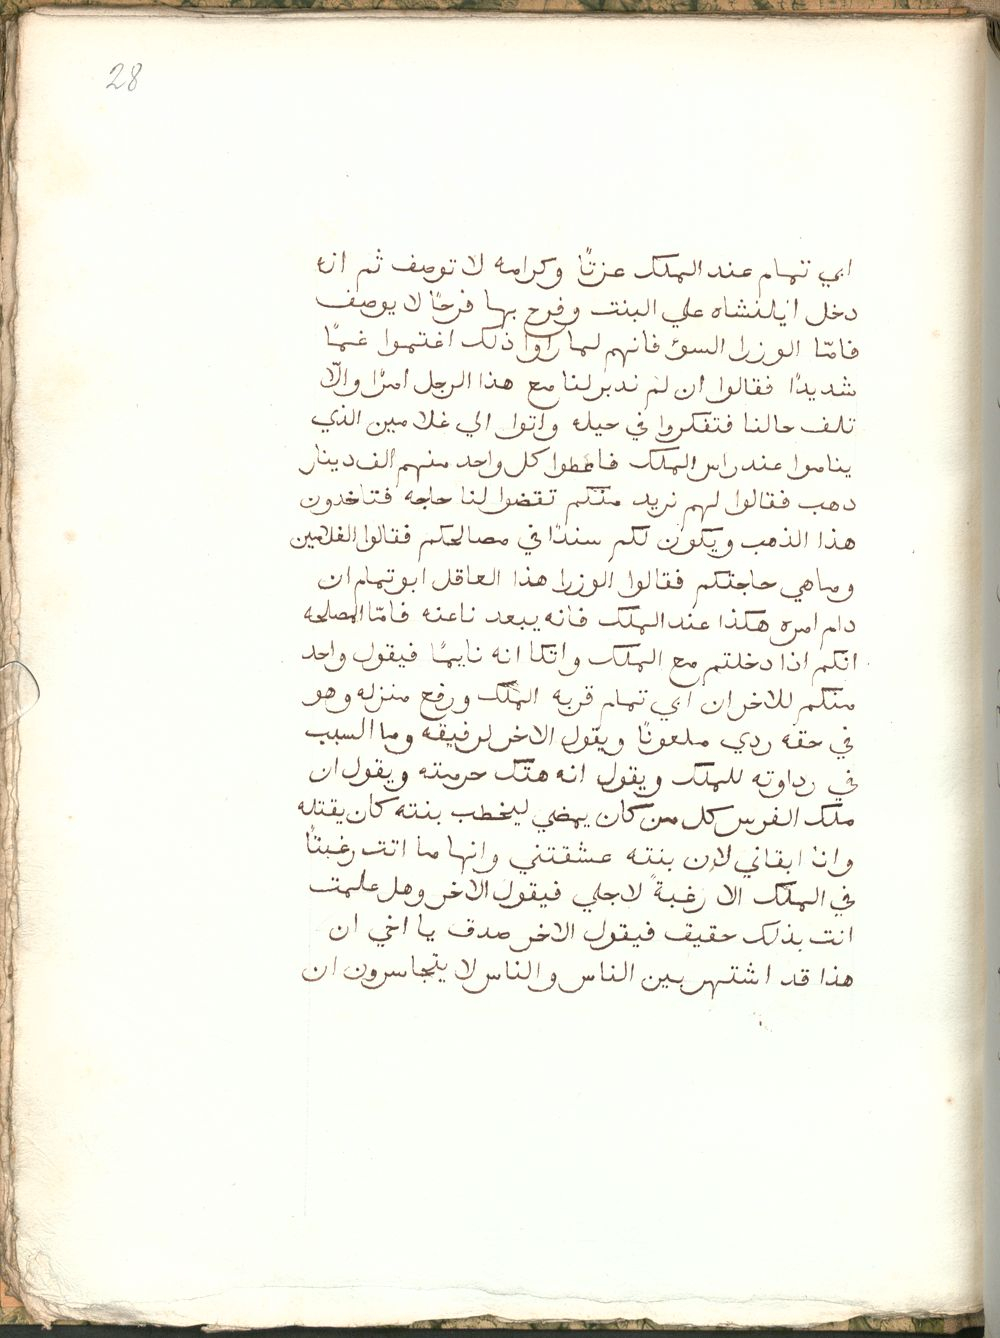 28
ابي تمام عند الملك عزتًا وكرامه لا توصف ثم انه
دخل ايلنشاه علي البنت وفرح بها فرحًا لا يوصف
فامّا الوزرا السوٴ فانهم لما راوا ذلك اغتموا غمًا
شديدًا فقالوا ان لم ندبر لنا مع هذا الرجل امرًا والّا
تلف حالنا فتفكروا في حيله واتوا الي غلامين الذي
يناموا عند راس الملك فاعطوا كل واحد منهم الف دينار
دهب فقالوا لهم نريد منكم تقضوا لنا حاجه فتاخدون
هذا الذهب ويكون لكم سندًا في مصالحكم فقالوا الغلامين
وما هي حاجتكم فقالوا الوزرا هذا العاقل ابو تمام ان
دام امره هكذا عند الملك فانه يبعد ناعنه فامّا المصلحه
انكم اذا دخلتم مع الملك واتكا انه نايمًا فيقول واحد
منكم للاخر ان ابي تمام قربه الملك ورفع منزله وهو
في حقه ردي ملعونًا ويقول الاخر لرفيقه وما السبب
في رداوته للملك ويقول انه هتك حرمته ويقول ان
ملك الفرس كل من كان يمضي ليخطب بنته كان يقتله
وانا ابقاني لان بنته عشقتني وانها ما اتت رغبتًا
في الملك الا رغبةً لاجلي فيقول الاخر وهل علمت
انت بذلك حقيق فيقول الاخر صدق يا اخي ان
هذا قد اشتهر بين الناس والناس لا يتجاسرون ان